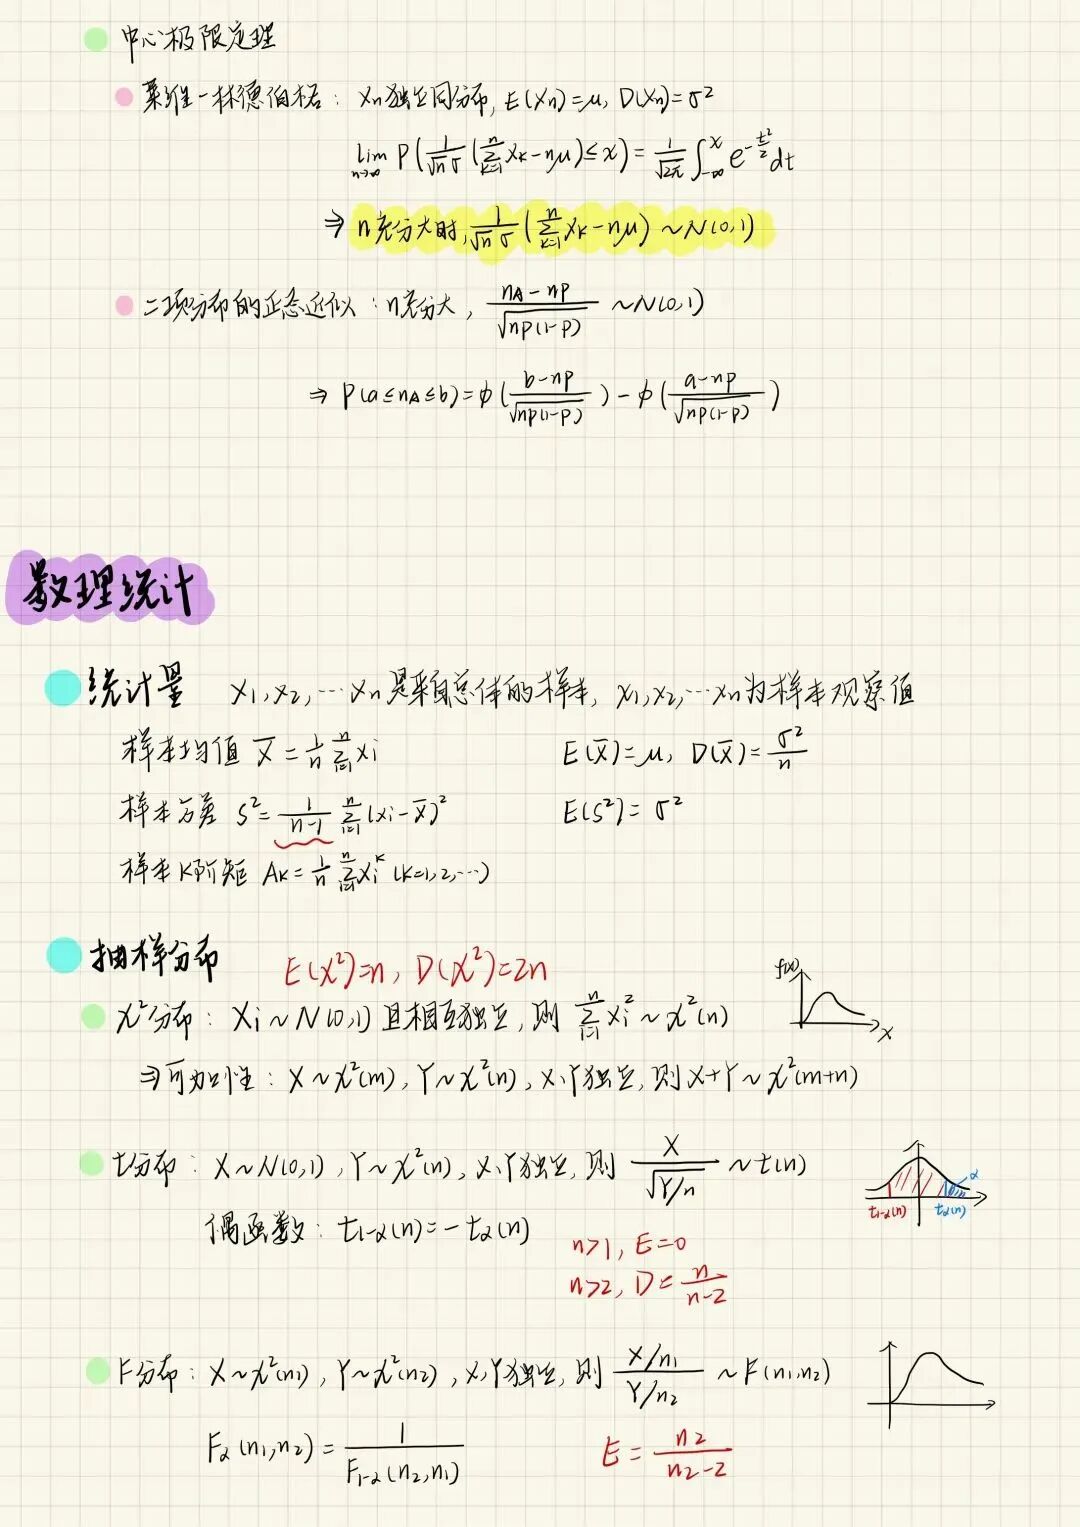 中心极限定理
莱维-林德伯格: Xn独立同分布, E(Xn)=μ, D(Xn)=σ²
lim n→∞ P(1/(√n σ) (∑k=1^n Xk-nμ)≤x)=1/√2π ∫-∞^x e^(-t²/2) dt
⇒ n充分大时, 1/(√n σ) (∑k=1^n Xk-nμ) ~N(0,1)
二项分布的正态近似: n充分大, (nA-np)/√np(1-p) ~N(0,1)
⇒ P(a≤nA≤b)=φ((b-np)/√np(1-p))-φ((a-np)/√np(1-p))
数理统计
统计量 X1,X2,…Xn是来自总体的样本, x1,x2,…xn为样本观察值
样本均值 X̄=1/n ∑i=1^n Xi E(X̄)=μ, D(X̄)=σ²/n
样本方差 S²=1/(n-1) ∑i=1^n (Xi-X̄)² E(S²)=σ²
样本K阶矩 Ak=1/n ∑i=1^n Xi^k (k=1,2,…)
抽样分布 E(χ²)=n, D(χ²)=2n
f(x)
x
χ²分布: Xi~N(0,1)且相互独立, 则 ∑i=1^n Xi²~χ²(n)
⇒可加性: X~χ²(m), Y~χ²(n), X、Y独立, 则X+Y~χ²(m+n)
t分布: X~N(0,1), Y~χ²(n), X、Y独立, 则 X/√Y/n ~t(n)
α
t1-α(n) tα(n)
偶函数: t1-α(n)=-tα(n)
n>1, E=0
n>2, D=n/(n-2)
F分布: X~χ²(n1), Y~χ²(n2), X,Y独立, 则 (X/n1)/(Y/n2) ~F(n1,n2)
Fα(n1,n2)=1/F1-α(n2,n1) E=n2/(n2-2)